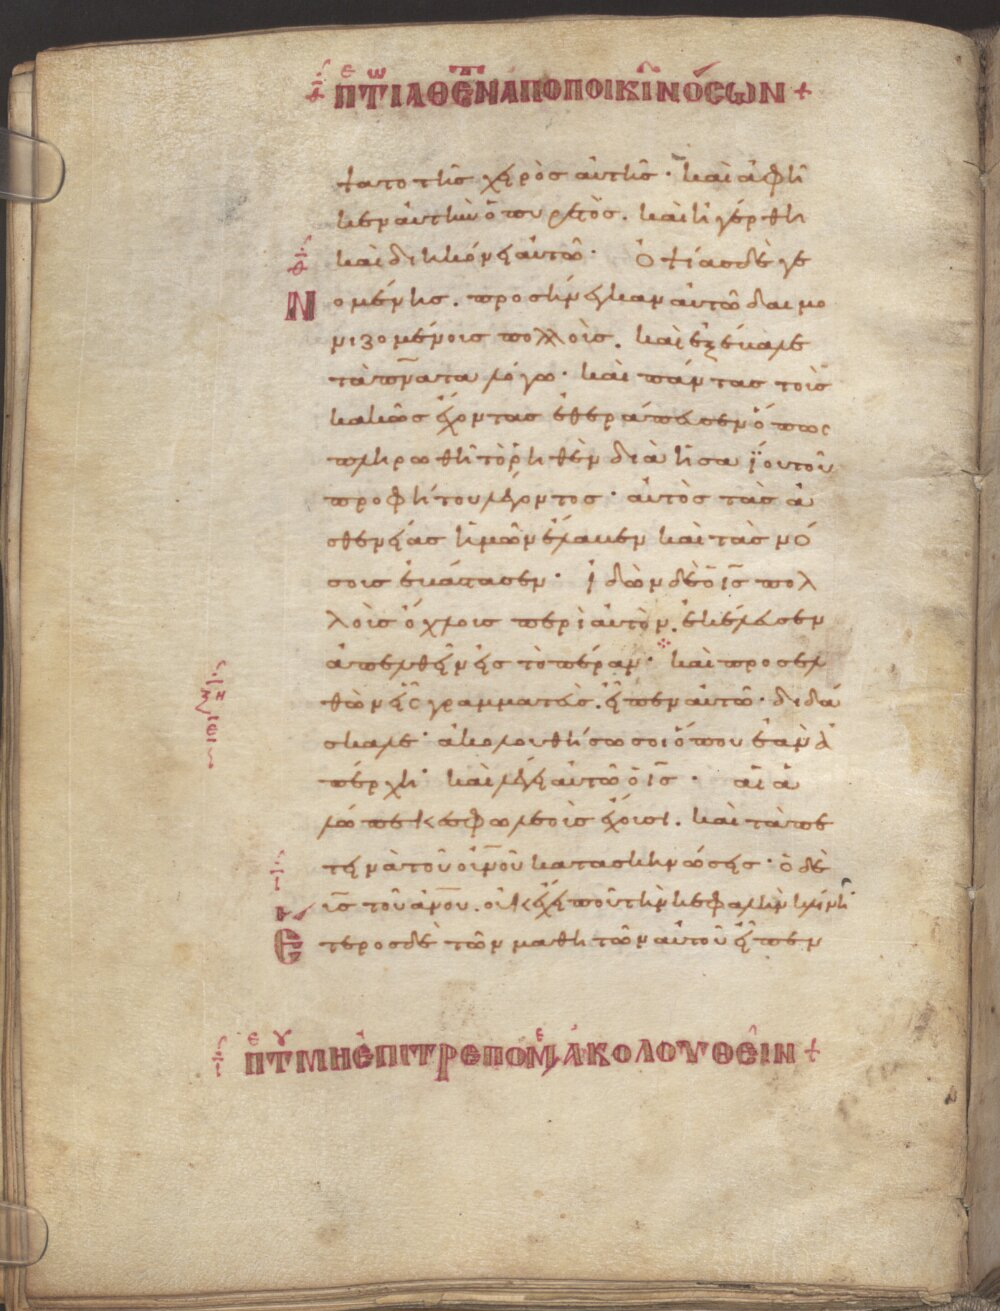 θ π̅ τ̅ ἰαθέν ἀπὸ ποικί νόσων +
ψατο τῆς χειρὸς αὐτῆς · καὶ ἀφῆ
κεν αὐτὴν ὁ πυρετός. καὶ ἠγέρθη
καὶ διηκόνει αὐτῶ · Ὀψίας δὲ γε
νομένης. προσήνεγκαν αὐτῶ δαιμο
νιζομένοις πολλοῖς. καὶ ἐξέβαλε
τὰ πν̅ατα λόγω · καὶ πάντας τοὺς
κακῶς ἔχοντας ἐθεράπευσεν ὅπως
πληρωθῆ τὸ ῥηθὲν διὰ ἡσαΐου τοῦ
προφήτου λέγοντος · αὐτὸς τὰς ἀ
σθενείας ἡμῶν ἔλαβεν καὶ τὰς νό
σοις ἐβάστασεν · ἰδὼν δὲ ὁ ι̅ς̅ πολ
λοῖς ὄχλοις περὶ αὐτὸν. ἐκέλευσεν
ἀπελθεῖν εἰς τὸ πέραν · καὶ προσελ
θὼν εἷς γραμματεὺς. εἶπεν αὐτῶ · διδά
σκαλε · ἀκολουθήσω σοι ὅπου ἐὰν ἀ
πέρχη · καὶ λέγει αὐτῶ ὁ ι̅ς̅ · αἱ ἀ
λώπεκες φωλεοὺς ἔχουσι. καὶ τὰ πε
τεινὰ τοῦ οὐν̅οῦ κατασκηνώσεις · ὁ δὲ
υ̅ς̅ τοῦ ἀν̅ου. οὐκ ἔχει ποῦ τὴν κεφαλὴν κλίνη ·
Ἕτερος δὲ τῶν μαθητῶν αὐτοῦ εἶπεν
ι π̅ τ̅ μὴ ἐπιτρεπομ ἀκολουθεῖν +